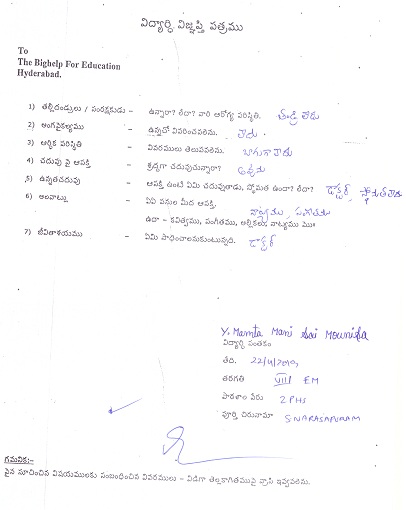 విద్యార్ధి విజ్ఞప్తి పత్రము
To
The Bighelp For Education
Hyderabad.
1) తల్లిదండ్రులు / సంరక్షకుడు – ఉన్నారా? లేదా? వారి ఆరోగ్య పరిస్థితి. తండ్రి లేడు
2) అంగవైకల్యము – ఉన్నచో వివరించవలెను. లేదు.
3) ఆర్ధిక పరిస్థితి – వివరములు తెలుపవలెను. బాగుగా లేదు
4) చదువు పై ఆసక్తి – శ్రద్ధగా చదువుచున్నారా? అవును
5) ఉన్నతచదువు – ఆసక్తి ఉంటే ఏమి చదువుతాడు, స్తోమత ఉందా? లేదా? డాక్టర్ స్తోమత లేదు
6) అలవాట్లు – ఏఏ పనుల మీద ఆసక్తి. నాట్యము,
ఉదా – కవిత్వము, సంగీతము, అల్లికలు, నాట్యము మొ॥
7) జీవితాశయము – ఏమి సాధించాలనుకుంటున్నది. డాక్టర్
Y. Mamta Mani Sai Mounika
విద్యార్ధి సంతకం
తేది. 22/4/2019
తరగతి VIII EM
పాఠశాల పేరు ZPHS
పూర్తి చిరునామా S NARASAPURAM
గమనిక:-
పైన సూచించిన విషయములకు సంబంధించిన వివరములు – విడిగా తెల్లకాగితముపై వ్రాసి ఇవ్వవలెను.